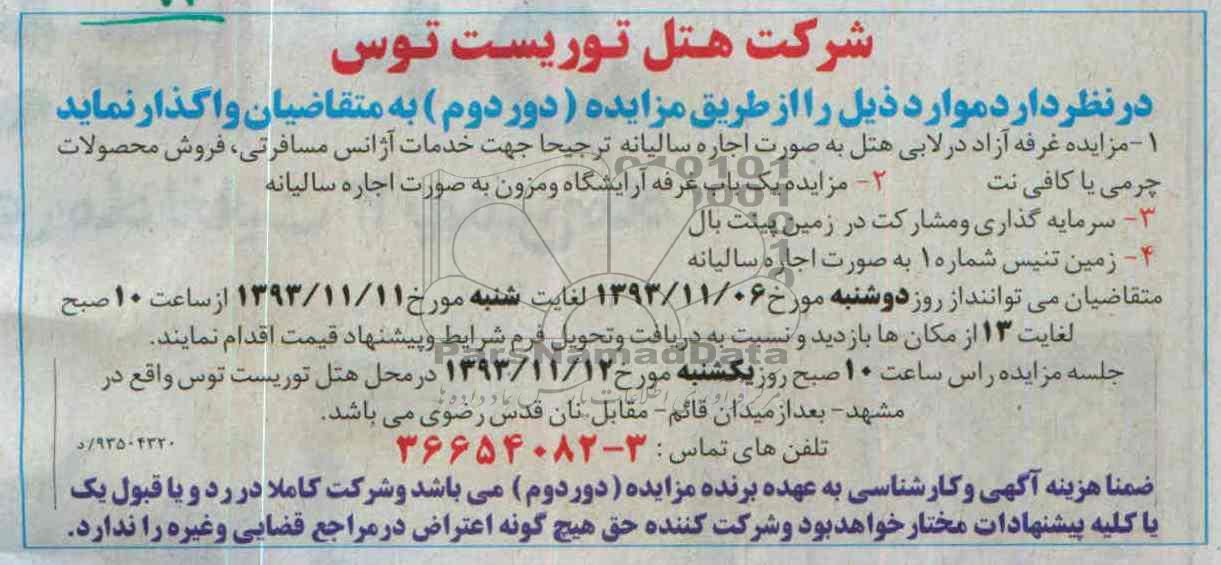 شرکت هتل توریست توس
در نظر دارد موارد ذیل را از طریق مزایده (دور دوم) به متقاضیان واگذار نماید
۱-مزایده غرفه آزاد در لابی هتل به صورت اجاره سالیانه ترجیحا جهت خدمات آژانس مسافرتی، فروش محصولات
چرمی یا کافی نت ۲- مزایده یک باب غرفه آرایشگاه ومزون به صورت اجاره سالیانه
۳- سرمایه گذاری ومشارکت در زمین پینت بال
۴- زمین تنیس شماره۱ به صورت اجاره سالیانه
متقاضیان می توانند از روز دوشنبه مورخ ۱۳۹۳/۱۱/۰۶ لغایت شنبه مورخ ۱۳۹۳/۱۱/۱۱ از ساعت ۱۰ صبح
لغایت ۱۳ از مکان ها بازدید و نسبت به دریافت وتحویل فرم شرایط وپیشنهاد قیمت اقدام نمایند.
ParsNamadData
جلسه مزایده راس ساعت ۱۰ صبح روز یکشنبه مورخ ۱۳۹۳/۱۱/۱۲ در محل هتل توریست توس واقع در
مشهد- بعد از میدان قائم- مقابل نان قدس رضوی می باشد.
تلفن های تماس: ۳-۳۶۶۵۴۰۸۲
۹۳۵۰۴۳۲۰/د
ضمنا هزینه آگهی وکارشناسی به عهده برنده مزایده (دور دوم) می باشد وشرکت کاملا در رد و یا قبول یک
یا کلیه پیشنهادات مختار خواهد بود وشرکت کننده حق هیچ گونه اعتراض در مراجع قضایی وغیره را ندارد.